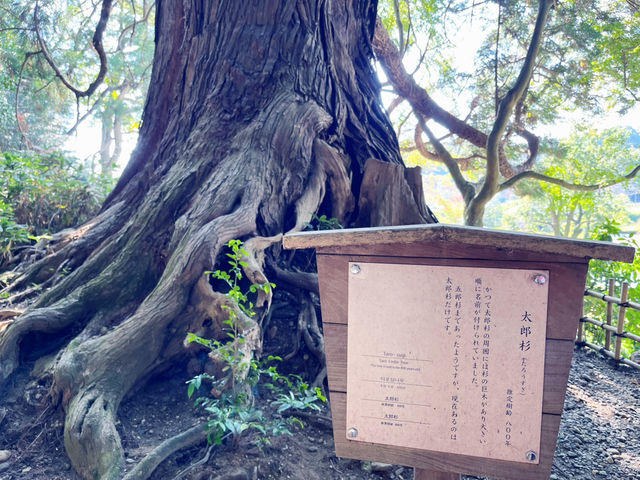 太郎杉（たろうすぎ）
推定樹齢 八〇〇年
かつて太郎杉の周囲には杉の巨木があり大きい
順に名前が付けられていました。
五郎杉まであったようですが、現在あるのは
太郎杉だけです。
Taro-sugi
Taro cedar Tree
타로 삼나무
太郎杉
太郎杉